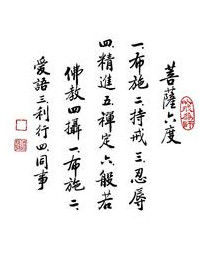 菩薩六度
一.布施二.持戒三.忍辱
四.精進五.禪定六.般若
佛教四攝一.布施二.
愛語三.利行四.同事